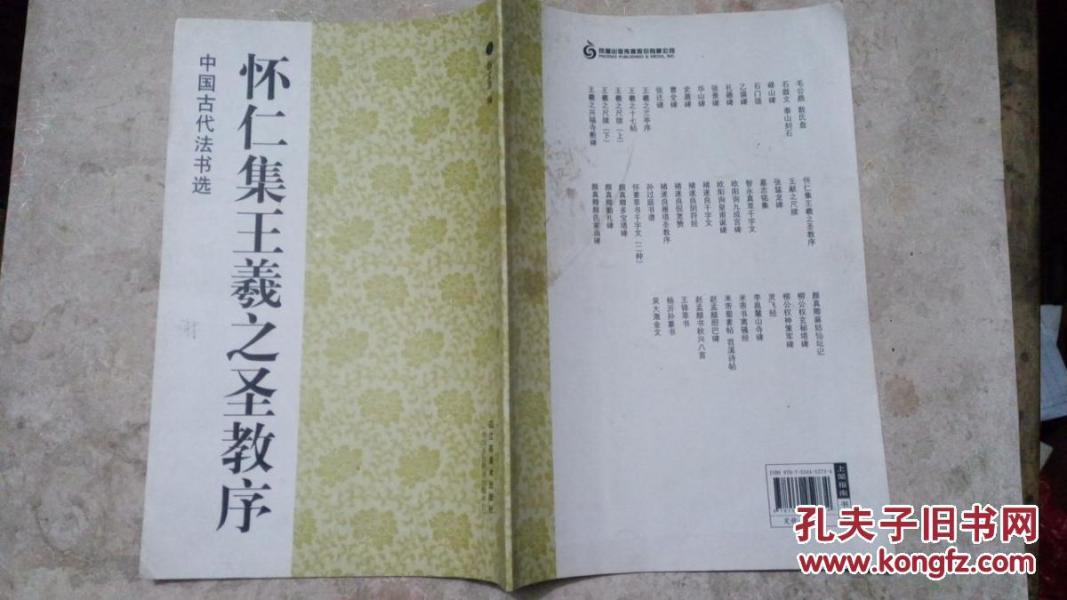 怀仁集王羲之圣教序
中国古代法书选
凤凰出版传媒股份有限公司
PHOENIX PUBLISHING & MEDIA, INC.
毛公鼎 散氏盘
石鼓文 泰山刻石
峄山碑
石门颂
乙瑛碑
礼器碑
张景碑
华山碑
史晨碑
曹全碑
张迁碑
王羲之兰亭序
王羲之十七帖
王羲之尺牍（上）
王羲之尺牍（下）
王羲之兴福寺断碑
怀仁集王羲之圣教序
王献之尺牍
张猛龙碑
墓志铭集
智永真草千字文
欧阳询九成宫碑
欧阳询皇甫诞碑
褚遂良千字文
褚遂良阴符经
褚遂良倪宽赞
褚遂良雁塔圣教序
孙过庭书谱
怀素草书千字文（二种）
颜真卿多宝塔碑
颜真卿勤礼碑
颜真卿颜氏家庙碑
颜真卿麻姑仙坛记
柳公权玄秘塔碑
柳公权神策军碑
灵飞经
李邕麓山寺碑
米芾书离骚经
米芾蜀素帖 苕溪诗帖
赵孟頫胆巴碑
赵孟頫书秋兴八首
王铎草书
杨沂孙篆书
吴大澂金文
上架指南 书
孔夫子旧书网
www.kongfz.com